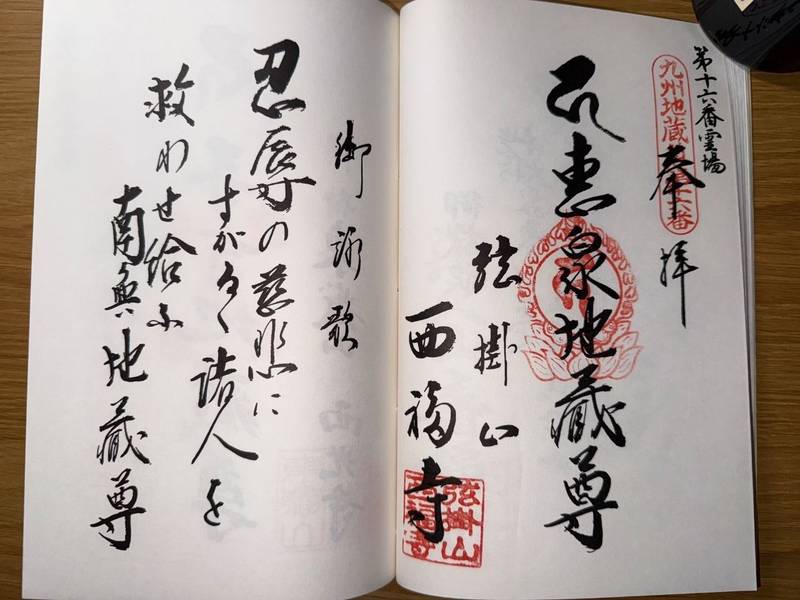 第十六番霊場
九州地蔵
奉拝
恵泉地蔵尊
弦掛山
西福寺
弦掛山
西福寺
御詠歌
忍辱の慈悲に
すが 諸人を
救わせ給ふ
南無地蔵尊